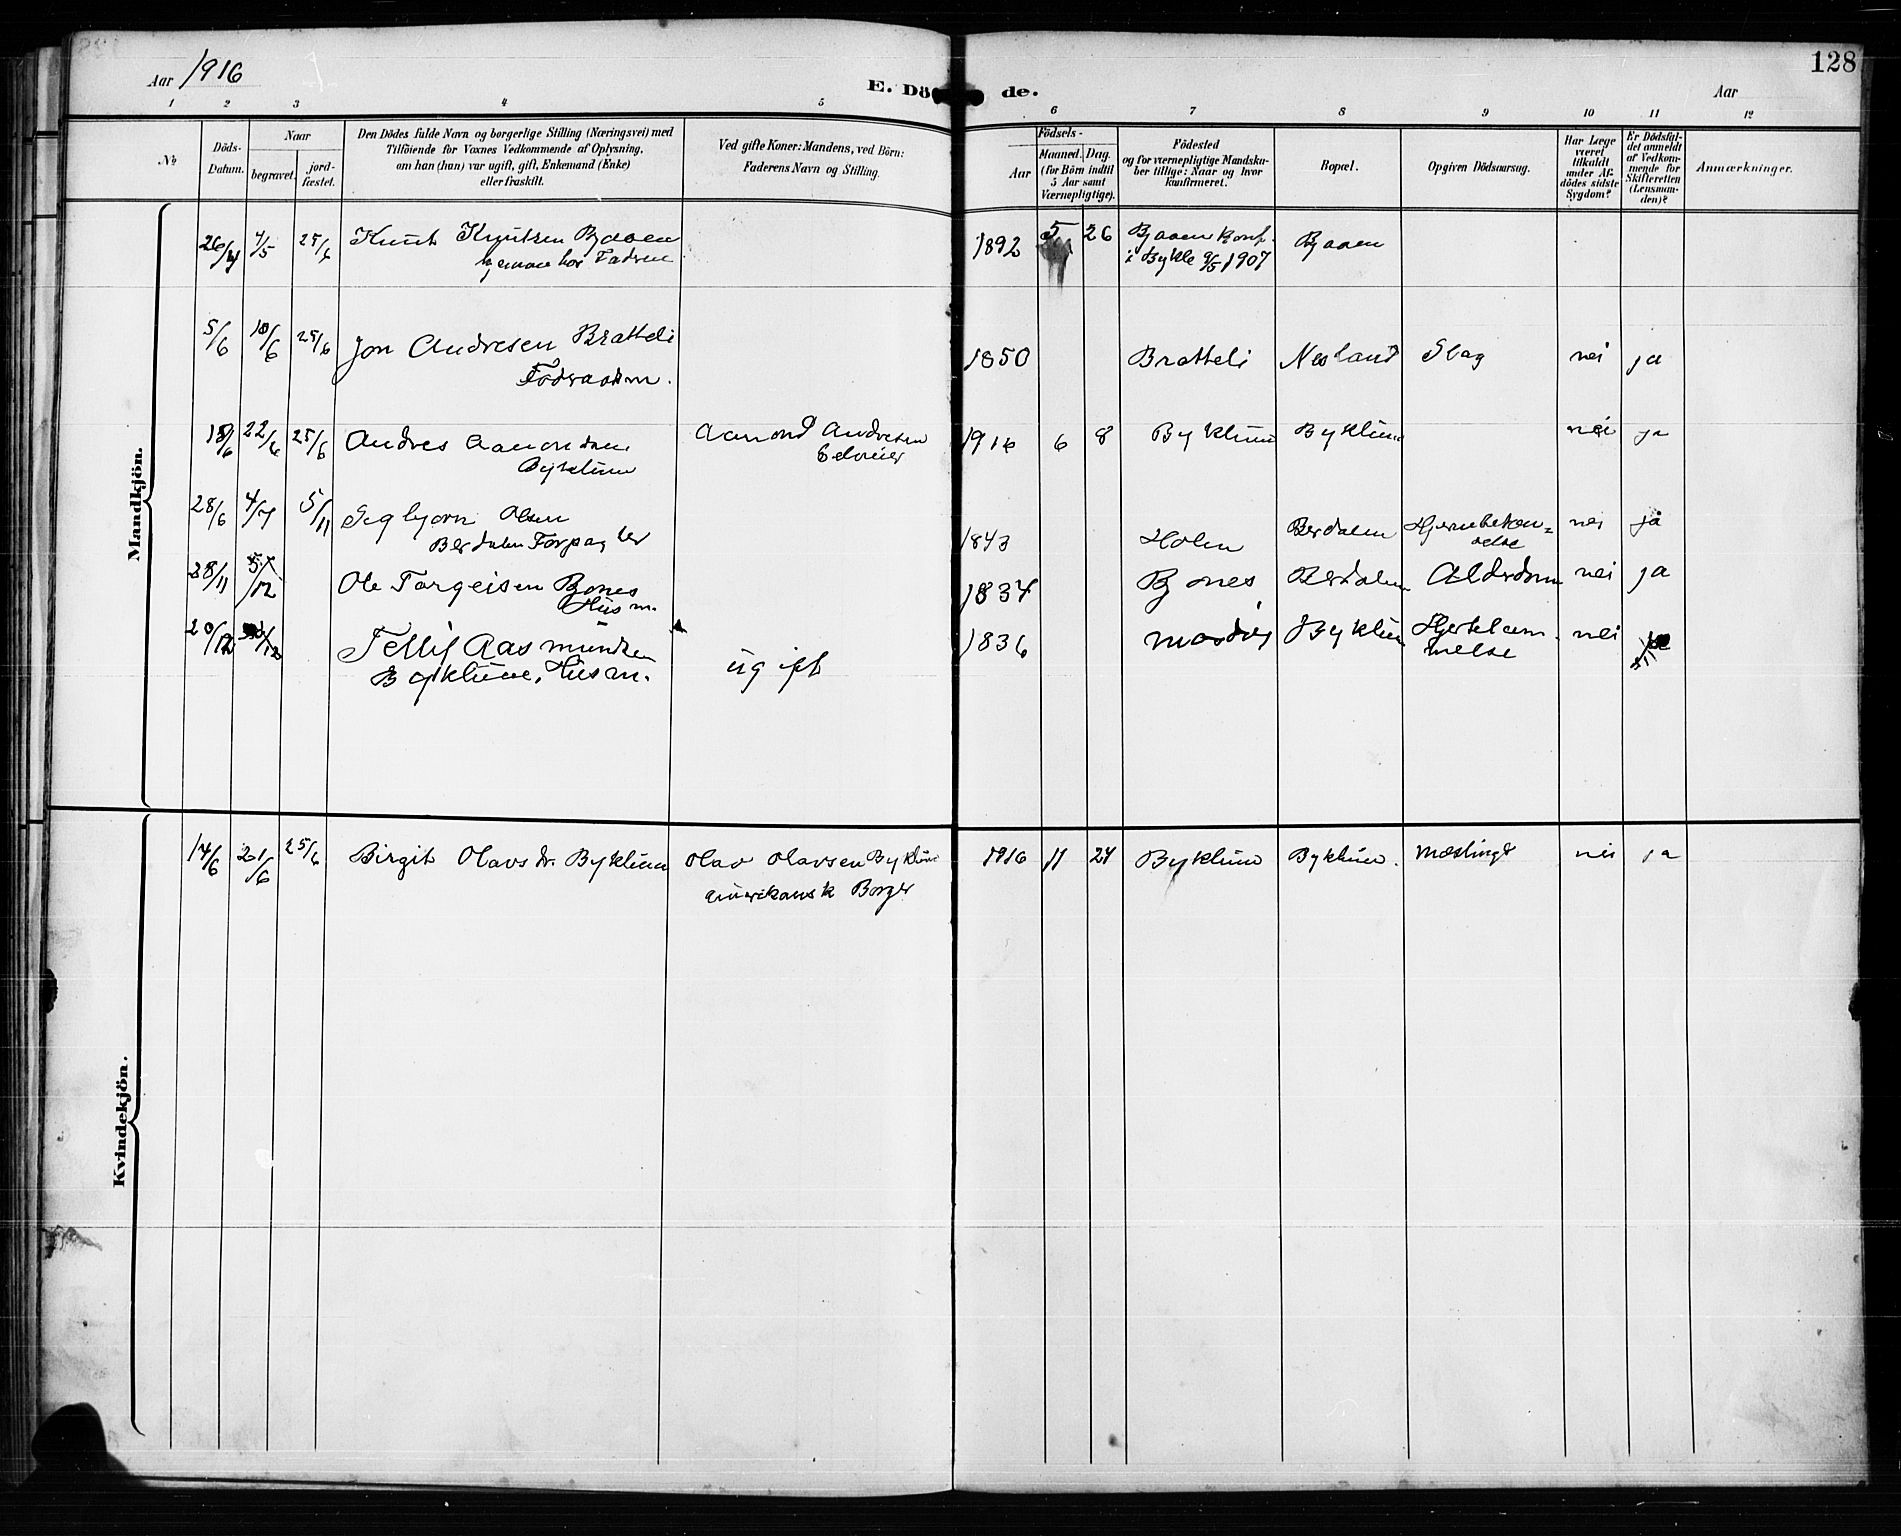 128
Aar 1916
E. Döde.
Aar
1 2 3 4 5 6 7 8 9 10 11 12
No
Döds-Datum.
Naar
begravet.
jord-fæstet.
Den Dödes fulde Navn og borgerlige Stilling (Næringsvei) med
Tilföiende for Voxnes Vedkommende af Oplysning,
om han (hun) var ugift, gift, Enkemand (Enke)
eller fraskilt.
Ved gifte Koner: Mandens, ved Börn:
Faderens Navn og Stilling.
Födsels-
Aar
Maaned. Dag.
(for Börn indtil
5 Aar samt
Værnepligtige).
Födested
og for værnepligtige Mandska-
ber tillige: Naar og hvor
konfirmeret.
Bopæl.
Opgiven Dödsaarsag.
Har Læge
været
tilkaldt
under Af-
dödes sidste
Sygdom?
Er Dödsfal-
det anmeldt
af Vedkom-
mende for
Skifteretten
(Lensman-
den)?
Anmærkninger.
Mandkjön.
26/4 4/5 25/6 Knut Knutsen Bjaaen 1892 5 26 Bjaaen Konf. Bjaaen
hjemme hos Fadren i Bykle 9/5 1907
5/6 10/6 25/6 Jon Andresen Bratteli 1850 Bratteli Nesland Slag nei ja
Föderaadsm.
22/6 25/6 Andres Aamondsen Aamond Andresen 1916 6 8 Byklum Byklum nei ja
Byklum Selveier
28/6 4/7 5/11 Segbjorn Olsen 1843 Holen Berdalen Hjernebetæn- nei ja
Berdalen Forpagter delse
28/11 5/12 Ole Torgeisen Bjones 1834 Bjones Berdalen Alderdom nei ja
Husm.
20/12 Tellef Aasmundsen 1836 Byklum Hjertelam- nei
Byklum, Husm. ugift melse
Kvindekjön.
14/6 21/6 25/6 Birgit Olavsdr. Byklum Olav Olavsen Byklum 1916 11 24 Byklum Byklum. Mæslinger nei ja
amerikansk Borger